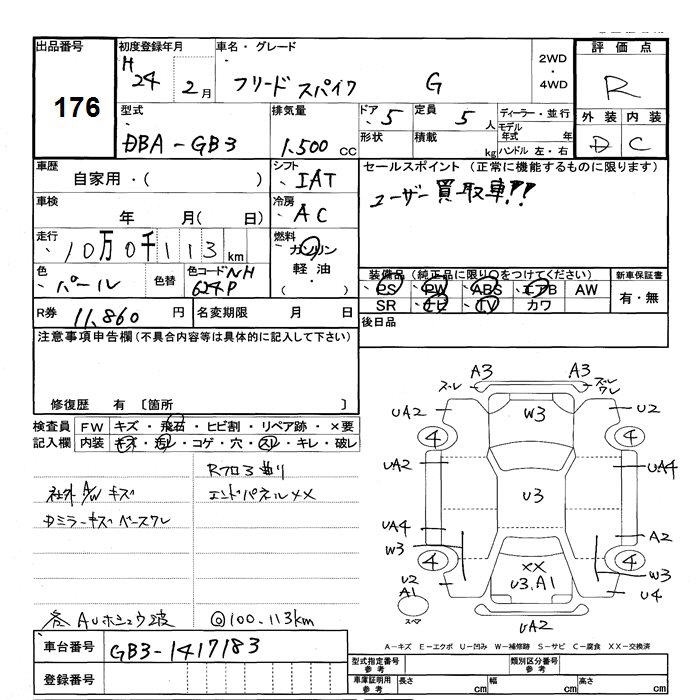 出品番号 初度登録年月 車名・グレード 評価点
176
H 24 2月 フリード スパイク G 2WD・4WD R
型式 排気量 ドア 定員 ディーラー・並行 外装 内装
DBA-GB3 1,500 CC 5 5人 モデル年式 年 D C
形状 積載 kg ハンドル 左・右
車歴 シフト セールスポイント (正常に機能するものに限ります)
自家用・( ) IAT ユーザー買取車!!
車検 冷房
年 月( 日) AC
走行 燃料
10万0千113km ガソリン
軽油
・( )
色 色替 色コード
パール NH624P
装備品 (純正品に限り○をつけてください) 新車保証書
PS PW ABS エアB AW 有・無
SR ナビ TV カワ
R券 11,860 円 名変期限 月 日 後日品
注意事項申告欄(不具合内容等は具体的に記入して下さい)
修復歴 有 〔箇所 〕
検査員 FW キズ・飛石・ヒビ割・リペア跡・×要
記入欄 内装 キズ・汚レ・コゲ・穴・スレ・キレ・破レ
Rフロア曲り
社外A/W キズ エンドパネルXX
Dミラーキズ ベースワレ
◎100,113km
A3 A3
ズレ ズレ ワレ
UA2 W3 U2
4 4
UA2 U3 UA4
UA4 A2
W3 W3
4 4
XX
U3、A1
U2 U4
A1
スペア
UA2
車台番号 GB3-1417183
登録番号
A-キズ E-エクボ U-凹み W-補修跡 S-サビ C-腐食 XX-交換済
型式指定番号 参考 類別区分番号 参考
車庫証明用 参考 長さ cm 幅 cm 高さ cm